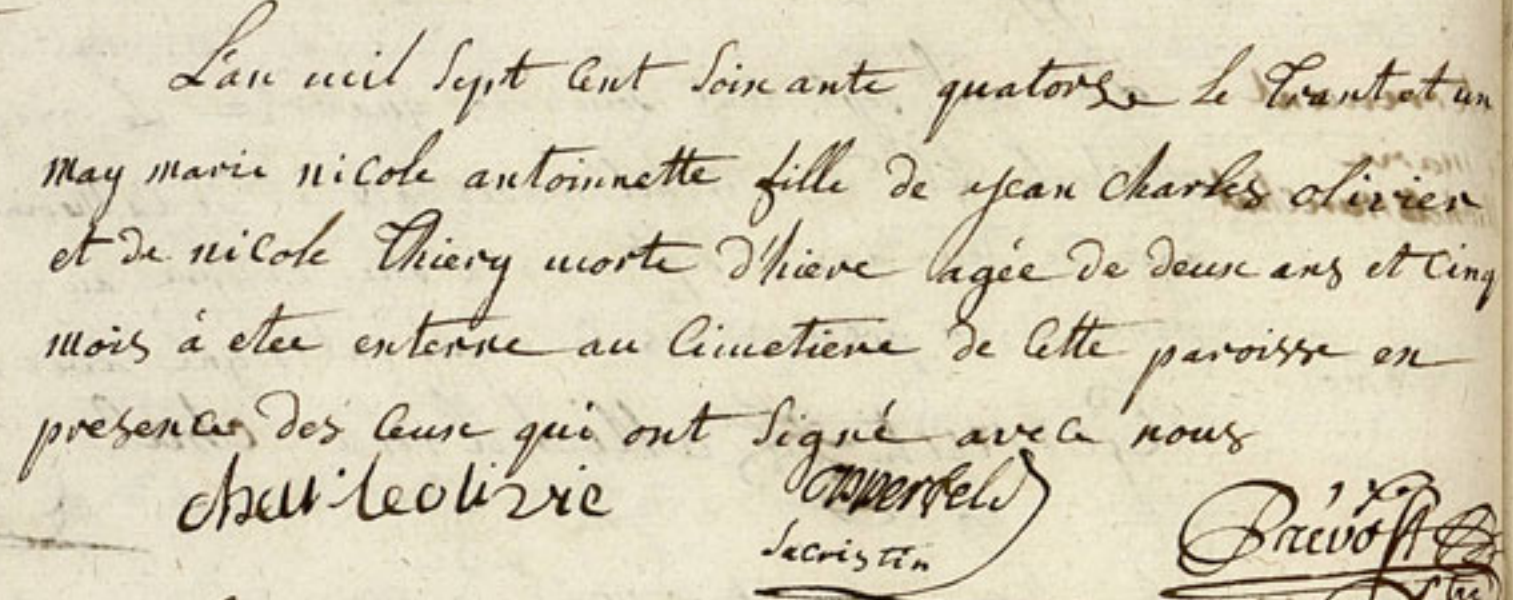 L'an mil sept cent soixante quatorze le Trant et un
may marie nicole antoinnette fille de jean charles olivier
et de nicole Thiery morte d'hiere agée de deux ans et cinq
mois à etee enterre au cimetiere de cette paroisse en
presence des ceux qui ont signé avec nous
olivie
sacristin
Prévost